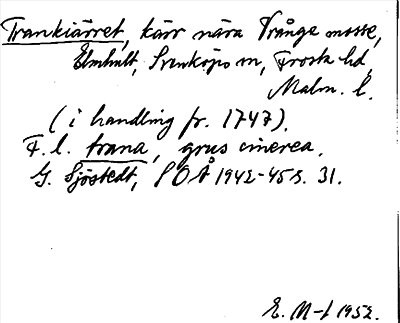 Trankiärret, kärr nära Vrånge mosse,
Elmhult, Svenköps sn, Frosta hd
Malm. l.
(i handling fr. 1747).
F. l. trana, grus cinerea.
G. Sjöstedt, SOÅ 1942-45 s. 31.
E. M-f 1952.